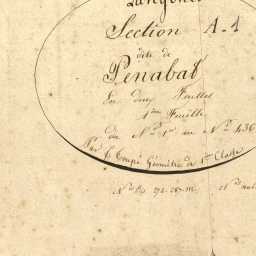 Section A.1
dite de
Penabat
En deux Feuilles
1ère Feuille
du N° 1er au N° 436
Par Géomètre de 1ère Classe